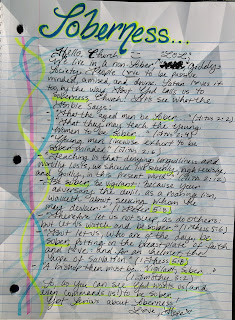 Soberness...
Hello, Church
We live in a non Sober, godless
Society. People love to be passive
minded, amused, and drunk. Satan loves it
too by the way. Stay God calls us to
soberness, Church! Let's see what the
Bible says:
- "That the aged men be Sober..." (Titus 2:2)
- "That they may teach the young
women to be Sober..." (Titus 2:4)
- "Young men likewise exhort to be
Sober minded." (Titus 2:6)
- "Teaching us that denying ungodliness and
worldly lusts, we should live soberly, righteously,
and godly, in this present world" (Titus 2:12)
- "Be sober, be vigilant; because your
adversary the devil, as a roaring lion,
walketh about, seeking whom he
may devour:" (1 Peter 5:8)
- "Therefore let us not sleep, as do others;
but let us watch and be sober." (1 Thess 5:6)
- "But let us, who are of the day, be
sober, putting on the breastplate of faith
and love; and for an helmet, the
hope of salvation." (1 Thess 5:8)
- "A bishop then must be, vigilant, sober..."
(1 Timothy 3:2)
So, as you can see God wants us (and
even commands us) to be sober.
Get serious about Soberness!
Love,